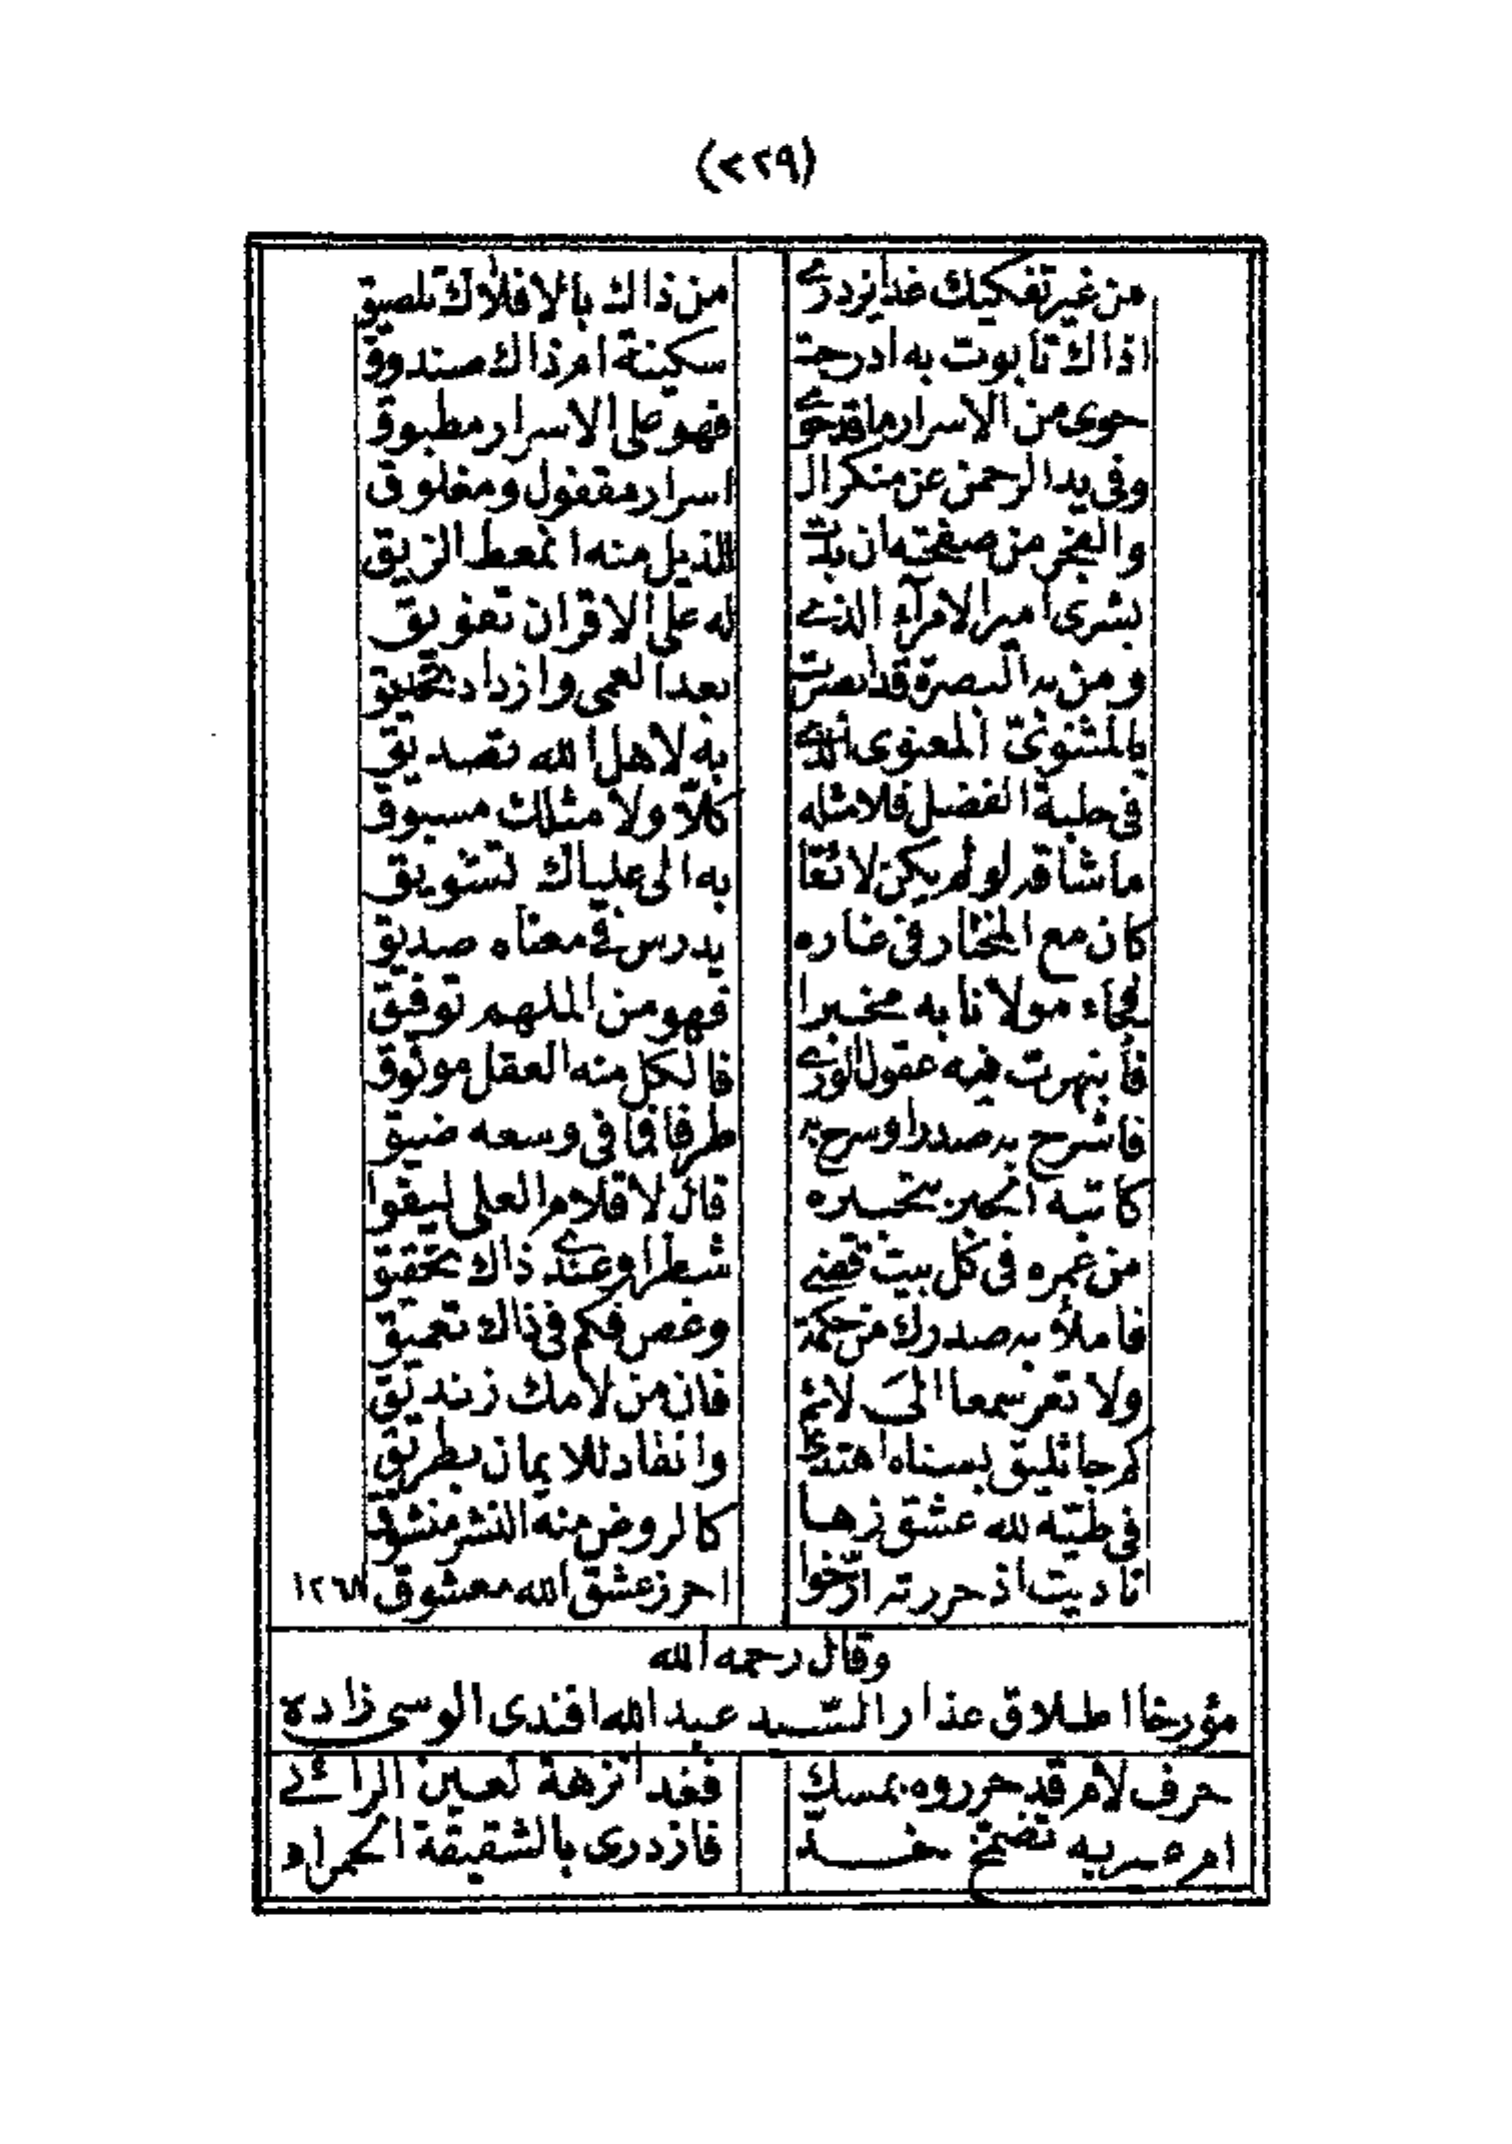 (٣٢٩)
من غير تفكيك غدا يزدري من ذاك بالافلاك تلصيق
اذاك تابوت به ادرجت سكينة ام ذاك صندوق
حوى من الاسرار ما قد حوى فهو على الاسرار مطبوق
وفي يد الرحمن عن منكر ال اسرار مقفول ومغلوق
والفجر من صفحته ان بدت الذيل منه انمعط الزيق
بشرى امير الامرآء الذي له على الاقران تفويق
ومن به البصرة قد ابصرت بعد العمى وازداد تحديق
بالمثنويّ المعنوى الذي به لاهل الله تصديق
في حلبة الفضل فلا مثله كلاّ ولا مثلك مسبوق
ما شاقه لو لم يكن لائقا به الى علياك تشويق
كان مع المختار في غاره يدرس في معناه صديق
فجاء مولانا به مخبرا فهو من الملهم توفيق
فأنبهرت فيه عقول الورى فالكل منه العقل موثوق
فاشرح به صدرا وسرح به طرفا فما في وسعه ضيق
كاتبه الحبر بتحبيره قال لاقلام العلى ليقوا
من عمره في كل بيت قضى شطرا وعندي ذاك تحقيق
فاملأ به صدرك من حكمة وغص فكم في ذاك تعميق
ولا تعر سمعا الى لائم فان من لامك زنديق
كم جاثليق بسناه اهتدى وانقاد للايمان بطريق
في طيّه لله عشق زها كالروض منه النشر منشوق
ناديت اذ حررته ارّخوا احرز عشق الله معشوق ١٢٦٨
وقال رحمه الله
مؤرخا اطلاق عذار السّيد عبد الله افندى الوسى زاده
حرف لام قد حرروه بمسك فغدا نزهة لعين الرائي
ام عبير به تضمّخ خدّ فازدرى بالشقيقة الحمراء